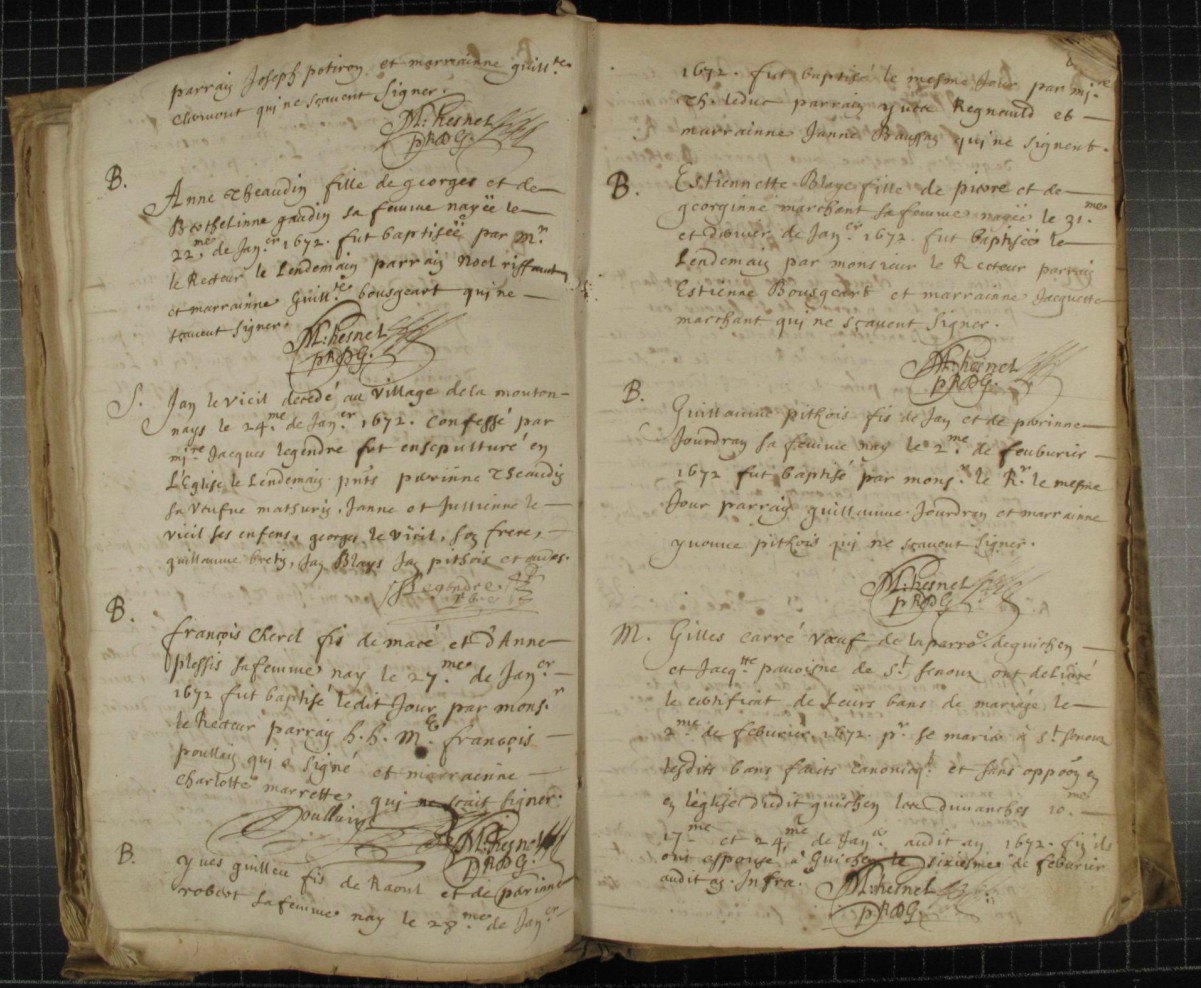 parrain Joseph potiron et marrainne guill.te
qui ne sçavent signer.
M: hesnel
PRDG.
B.
Anne Theaudin fille de georges et de
Berthelinne gaudin sa femme nayëe le
22.me de Jan.er 1672. fut baptiséë par M.r
le Recteur le Lendemain parrain Noel riffaut
et marrainne Guill.te bousgeart qui ne
sçavent signer.
M: hesnel
PRDG.
S.
Jan le vieil decedé au village de la mouton-
nays le 24.me de Jan.er 1672. Confessé par
mi.re Jacques legendre fut ensepulturé en
L'Eglise le Lendemain pnts perrinne Theaudin
sa veufve mathurin, Janne et Jullienne le
vieil ses enfens, georges le vieil, son frere,
guillaume bretin, Jan Blays Jan pithois et aues.
Legendre
B.
françois Cherel fis de macé et d'Anne
plessis sa femme nay le 27.me de Jan.er
1672 fut baptisé ledit Jour par mons.r
le Recteur parrain h. h. M.e françois
poullain qui a signé et marrainne
Charlotte marrette qui ne scait signer.
Poullain
M: hesnel
PRDG.
B.
yves guilleu fis de Raoul et de parinne
robert sa femme nay le 28.me de Jan.er
1672. fut baptisé le mesme Jour par mi.re
Th. leduc parrain yves Regnauld et
marrainne Janne qui ne signent.
B.
Estiennette Blaye fille de pierre et de
georginne marchant sa femme nayëe le 31.me
et dernier de Jan.er 1672. fut baptisée le
Lendemain par monsieur le Recteur parrain
Estienne Bousgeart et marrainne Jacquette
marchant qui ne sçavent signer.
M: hesnel
PRDG.
B.
Guillaume pithois fis de Jan et de perinne
Jourdran sa femme nay le 2.me de feuburier
1672 fut baptisé par mons.r le R.r le mesme
Jour parrain guillaume Jourdran et marrainne
yvonne pithois qui ne sçavent signer.
M: hesnel
PRDG
M.
Gilles carré vœuf de la parro.e de guichen
et Jacq.tte pavoisne de S.t Senoux ont delivré
le certificat de leurs bans de mariage le
2.me de feburier 1672. p.r se marier à S.t senoux
lesdits bans faicts canoniq.t et sans oppoõn en
en l'églize dudit guichen les dimanches 10.me
17.me et 24.me de Jan.er audit an 1672. ils
ont espousé à Guichen le sixiesme de feburier
audit an. Infra.
M: hesnel
PRDG.